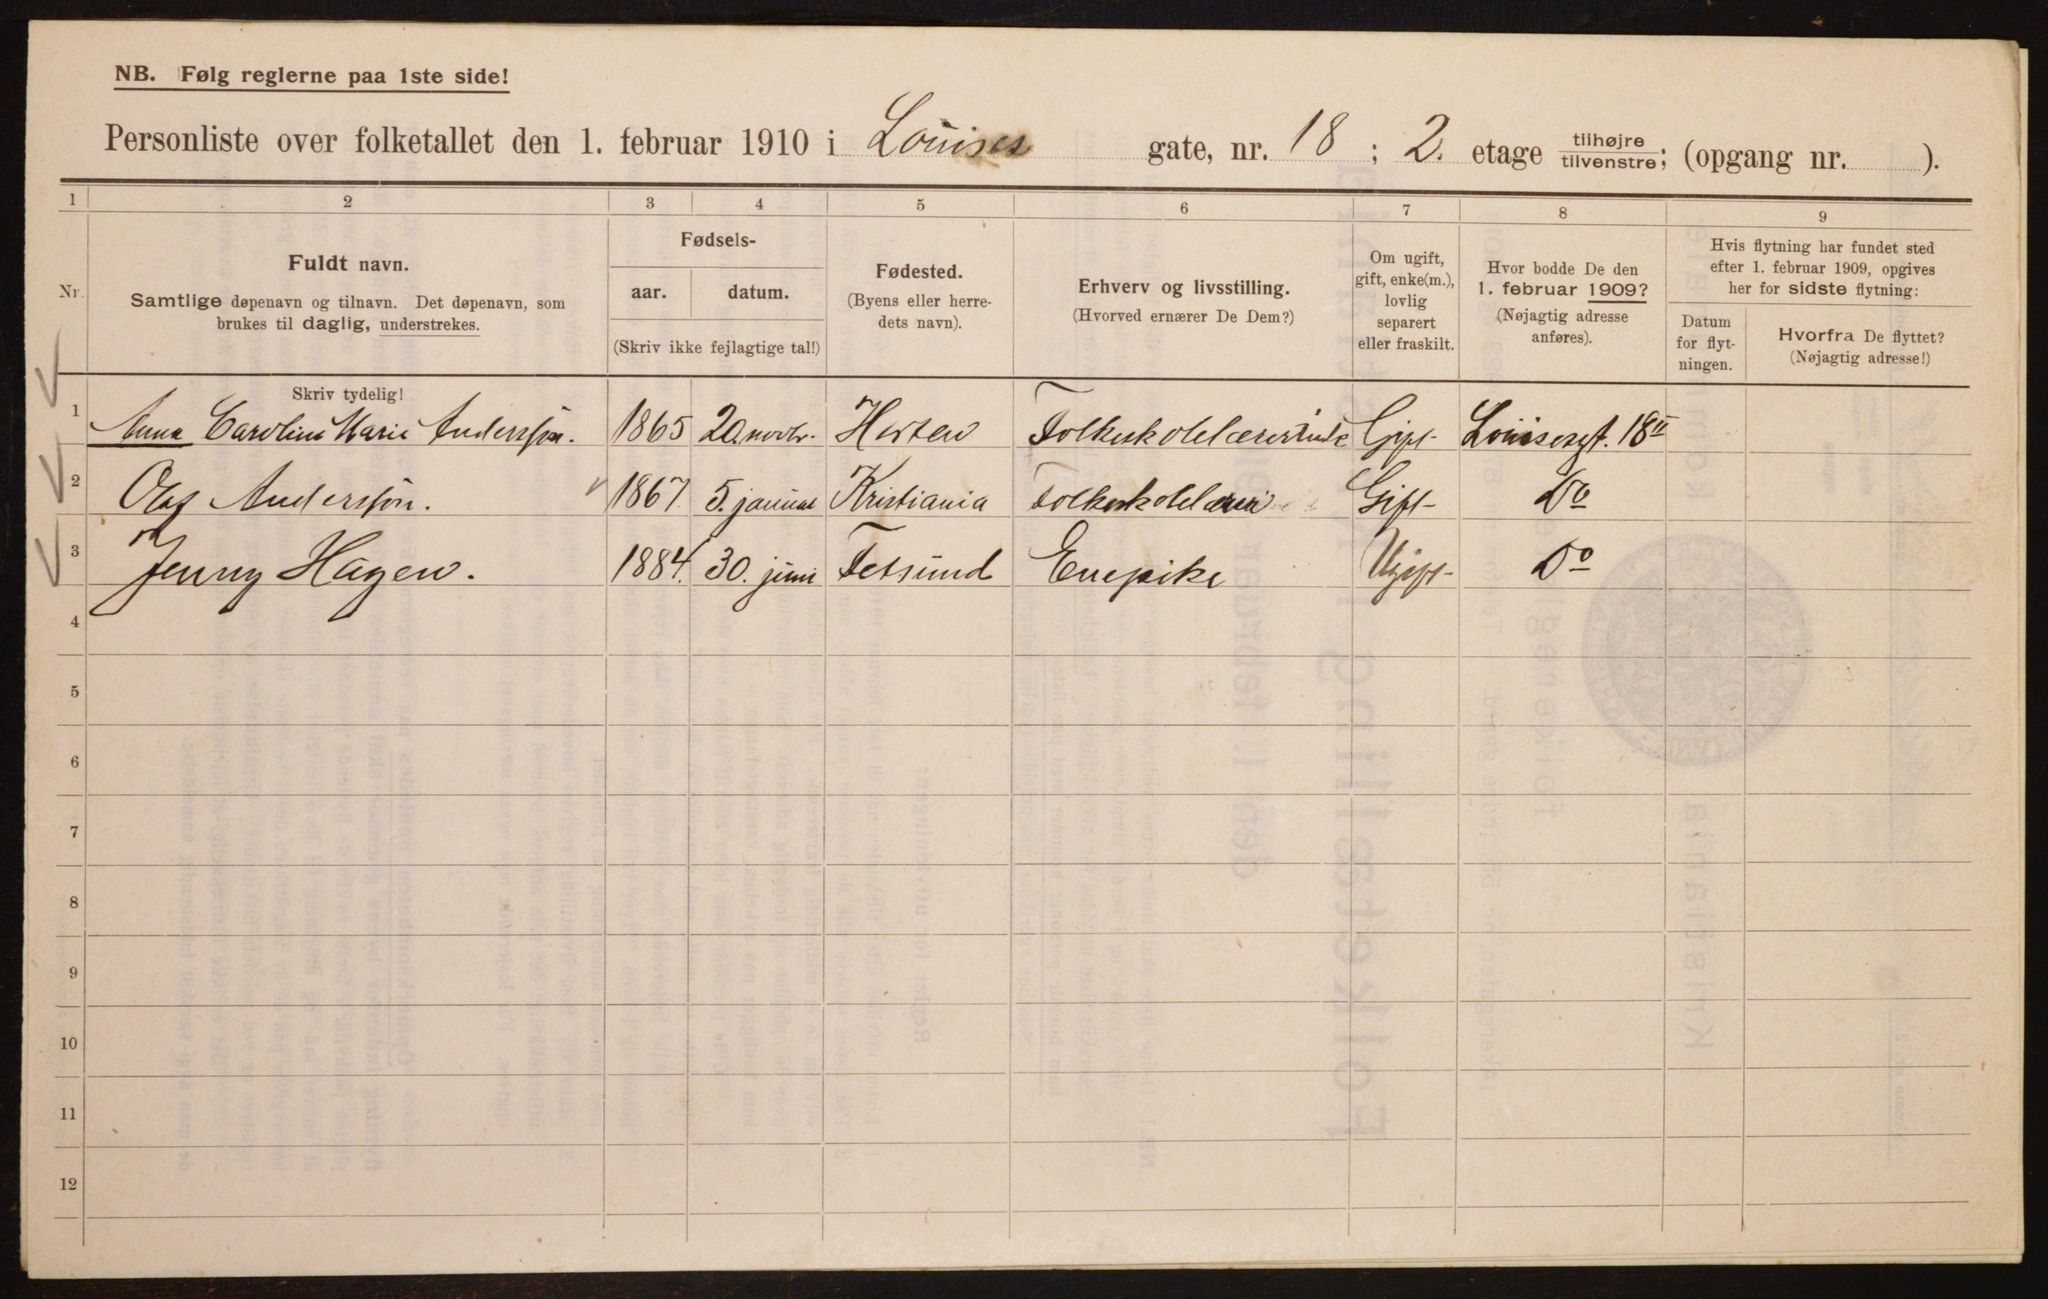 NB. Følg reglerne paa 1ste side!
Personliste over folketallet den 1. februar 1910 i Louises gate, nr. 18 ; 2. etage tilhøjre/tilvenstre; (opgang nr. ).
1 2 3 4 5 6 7 8 9
Nr.
Fuldt navn.
Samtlige døpenavn og tilnavn. Det døpenavn, som
brukes til daglig, understrekes.
Fødsels-
aar. datum.
(Skriv ikke fejlagtige tal!)
Fødested.
(Byens eller herre-
dets navn).
Erhverv og livsstilling.
(Hvorved ernærer De Dem?)
Om ugift,
gift, enke(m.),
lovlig
separert
eller fraskilt.
Hvor bodde De den
1. februar 1909?
(Nøjagtig adresse
anføres).
Hvis flytning har fundet sted
efter 1. februar 1909, opgives
her for sidste flytning:
Datum
for flyt-
ningen.
Hvorfra De flyttet?
(Nøjagtig adresse!)
Skriv tydelig!
1 Anna Caroline Marie Anderssøn. 1865 20. novbr. Horten Folkeskolelærerinde Gift Louisesgt. 18 II
2 Olaf Anderssøn. 1867. 5. januar Kristiania Folkeskolelærer Gift Do
3 Jenny Hagen. 1884. 30. juni Fetsund Enepike Ugift Do
4
5
6
7
8
9
10
11
12